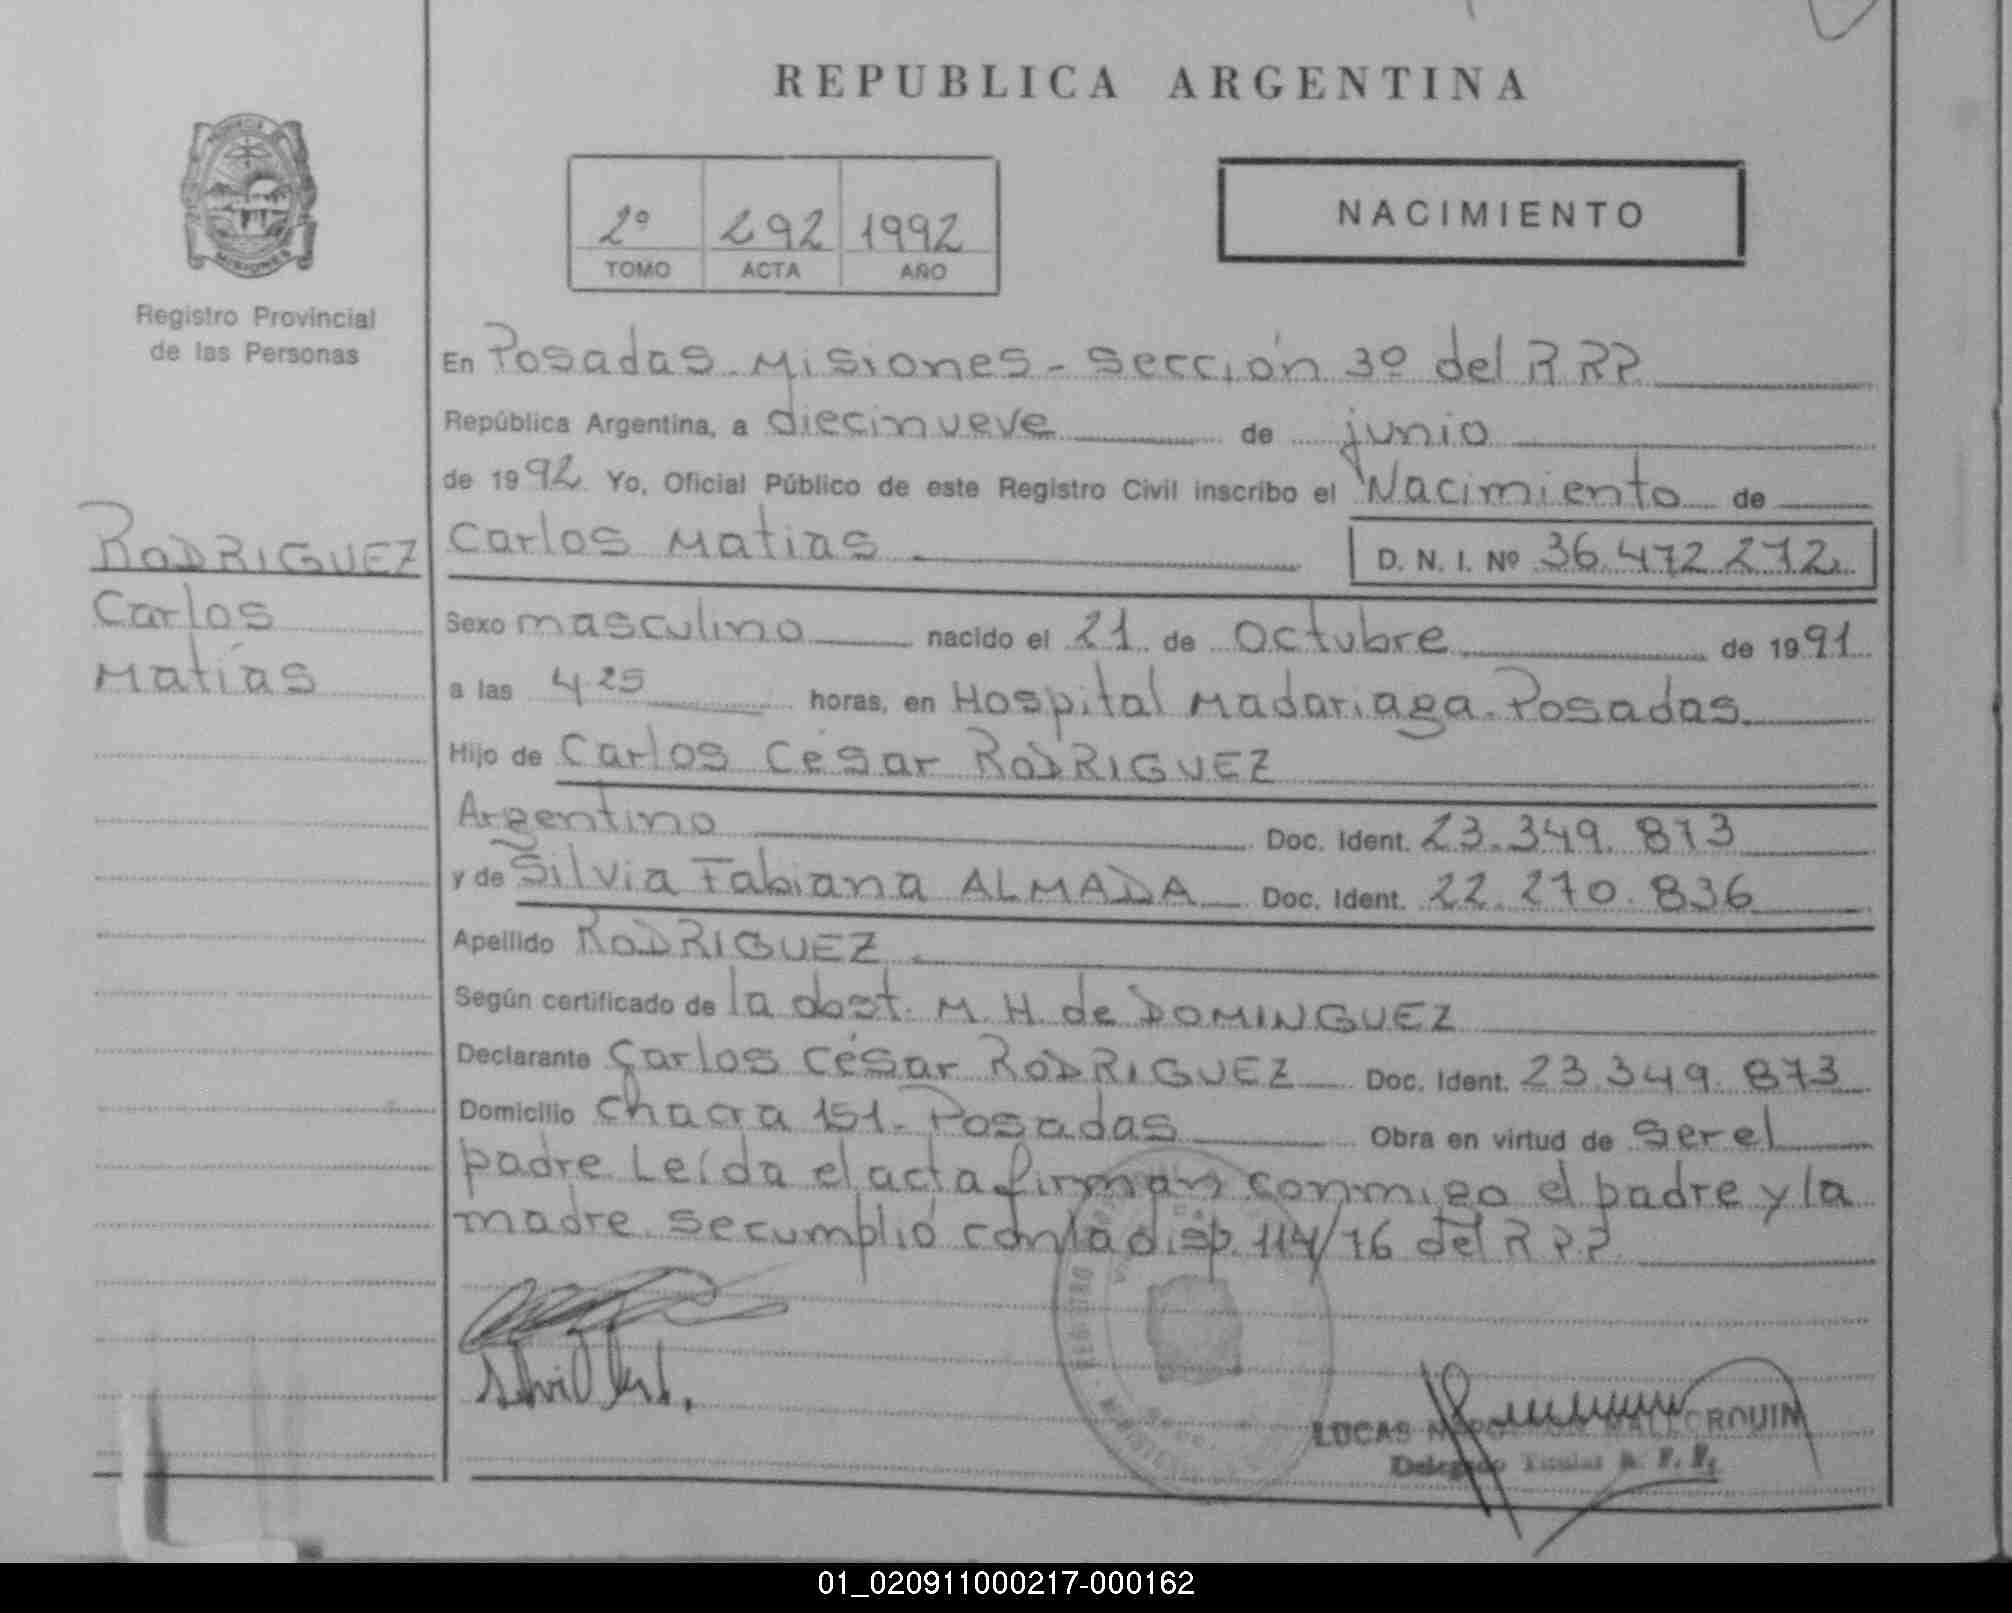 REPUBLICA ARGENTINA
PROVINCIA
MISIONES
Registro Provincial
de las Personas
2º 292 1992
TOMO ACTA AÑO
NACIMIENTO
RODRIGUEZ
Carlos
Matías
En Posadas Misiones - Sección 3º del R R P
República Argentina, a diecinueve de junio
de 1992 Yo, Oficial Público de este Registro Civil inscribo el Nacimiento de
Carlos Matias D. N. I. Nº 36.472.272
Sexo masculino nacido el 21 de Octubre de 1991
a las 4 25 horas, en Hospital Madariaga. Posadas
Hijo de Carlos César RODRIGUEZ
Argentino Doc. Ident. 23.349.873
y de Silvia Fabiana ALMADA Doc. Ident. 22.270.836
Apellido RODRIGUEZ
Según certificado de la obst. M. H. de DOMINGUEZ
Declarante Carlos César RODRIGUEZ Doc. Ident. 23 349.873
Domicilio Chacra 151 - Posadas Obra en virtud de ser el
padre. Leída el acta firman conmigo el padre y la
madre. se cumplió con la disp. 114/76 del R P.P
LUCAS NAPOLEON MALLORQUIN
Delegado Titular
01_020911000217-000162